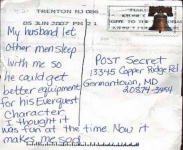 TRENTON NJ 086
05 JUN 2007 PM 2 L
My husband let
other men sleep
with me so
he could get
better equipment
for his Everquest
character.
I thought it
was fun at the time. Now it
makes me sad.
Post Secret
13345 Copper Ridge Rd
Germantown, MD
20874-3454